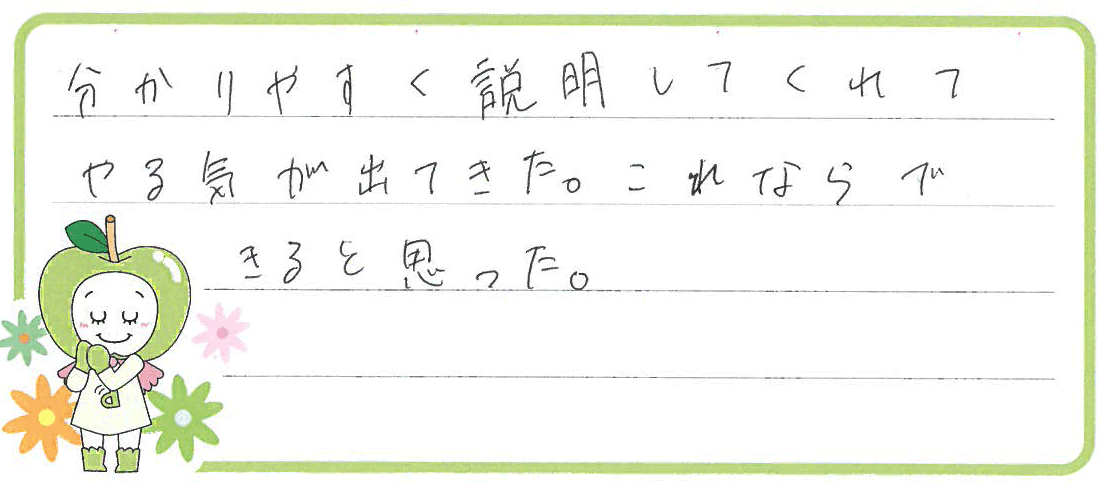 分かりやすく説明してくれて
やる気が出てきた。これならで
きると思った。